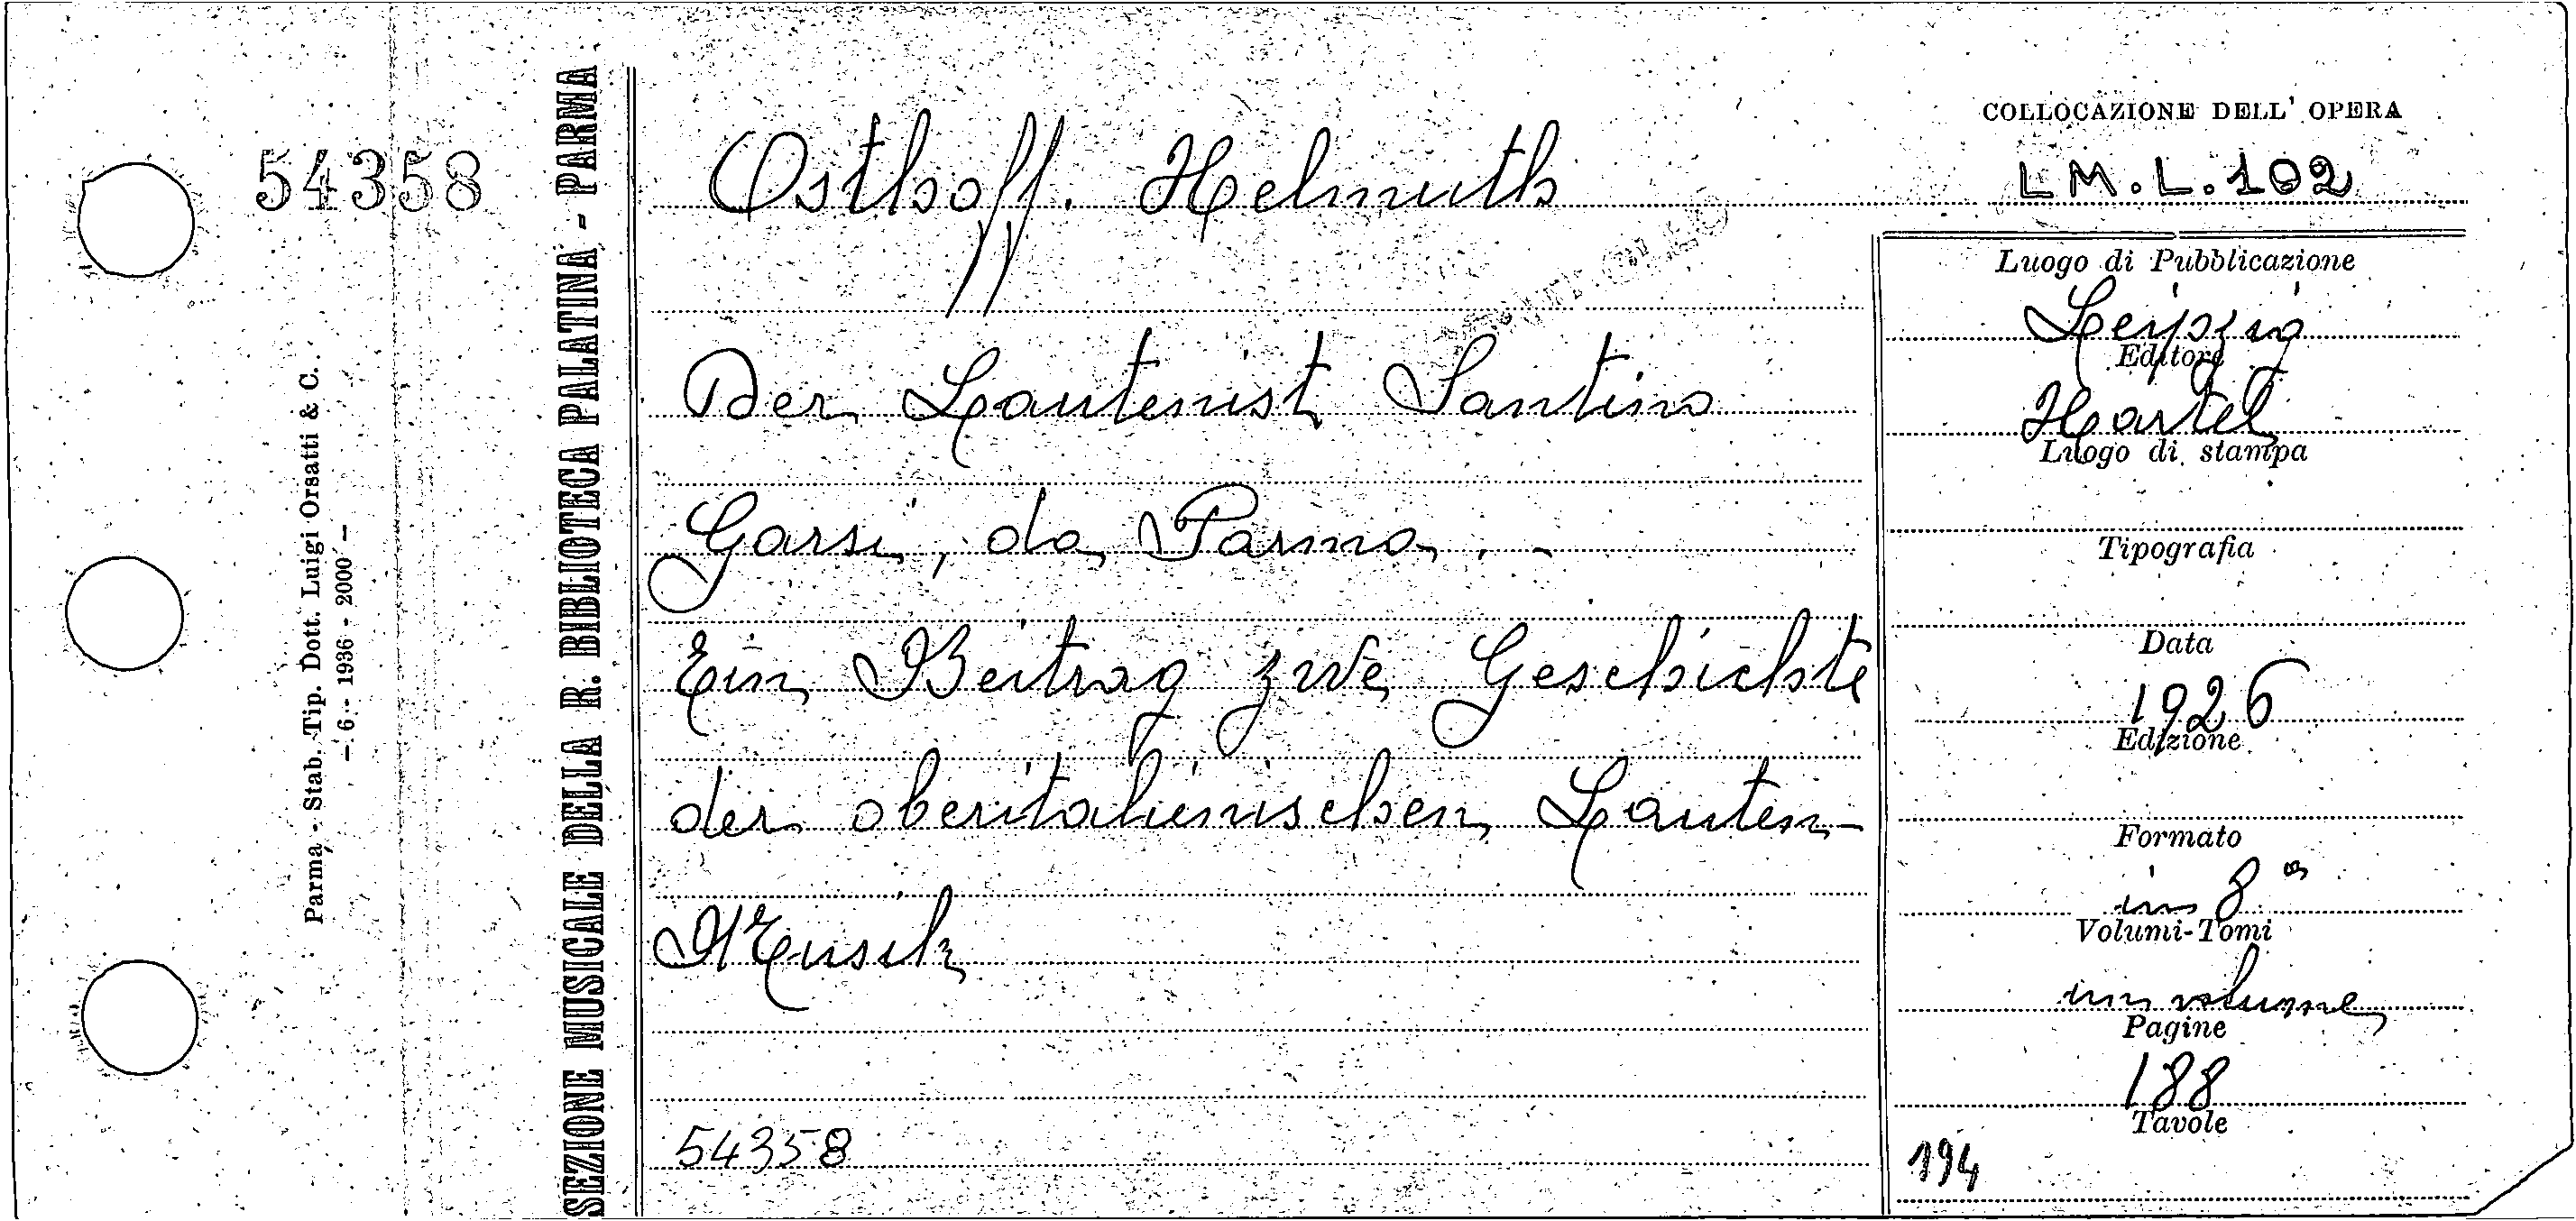 54358
Parma - Stab. Tip. Dott. Luigi Orsatti & C.
- 6 - 1936 - 2000 -
SEZIONE MUSICALE DELLA R. BIBLIOTECA PALATINA - PARMA
Osthoff. Helmuth
Der Lautenist Santino
Garsi, da Parma. -
Ein Beitrag zwe Geschichte
der oberitalienischen Lauten-
Musik
54358
COLLOCAZIONE DELL' OPERA
LM.L.102
Luogo di Pubblicazione
Leipzig
Editore
Hartel
Luogo di stampa
Tipografia
Data
1926
Edizione
Formato
in 8°
Volumi-Tomi
un volume
Pagine
188
Tavole
194